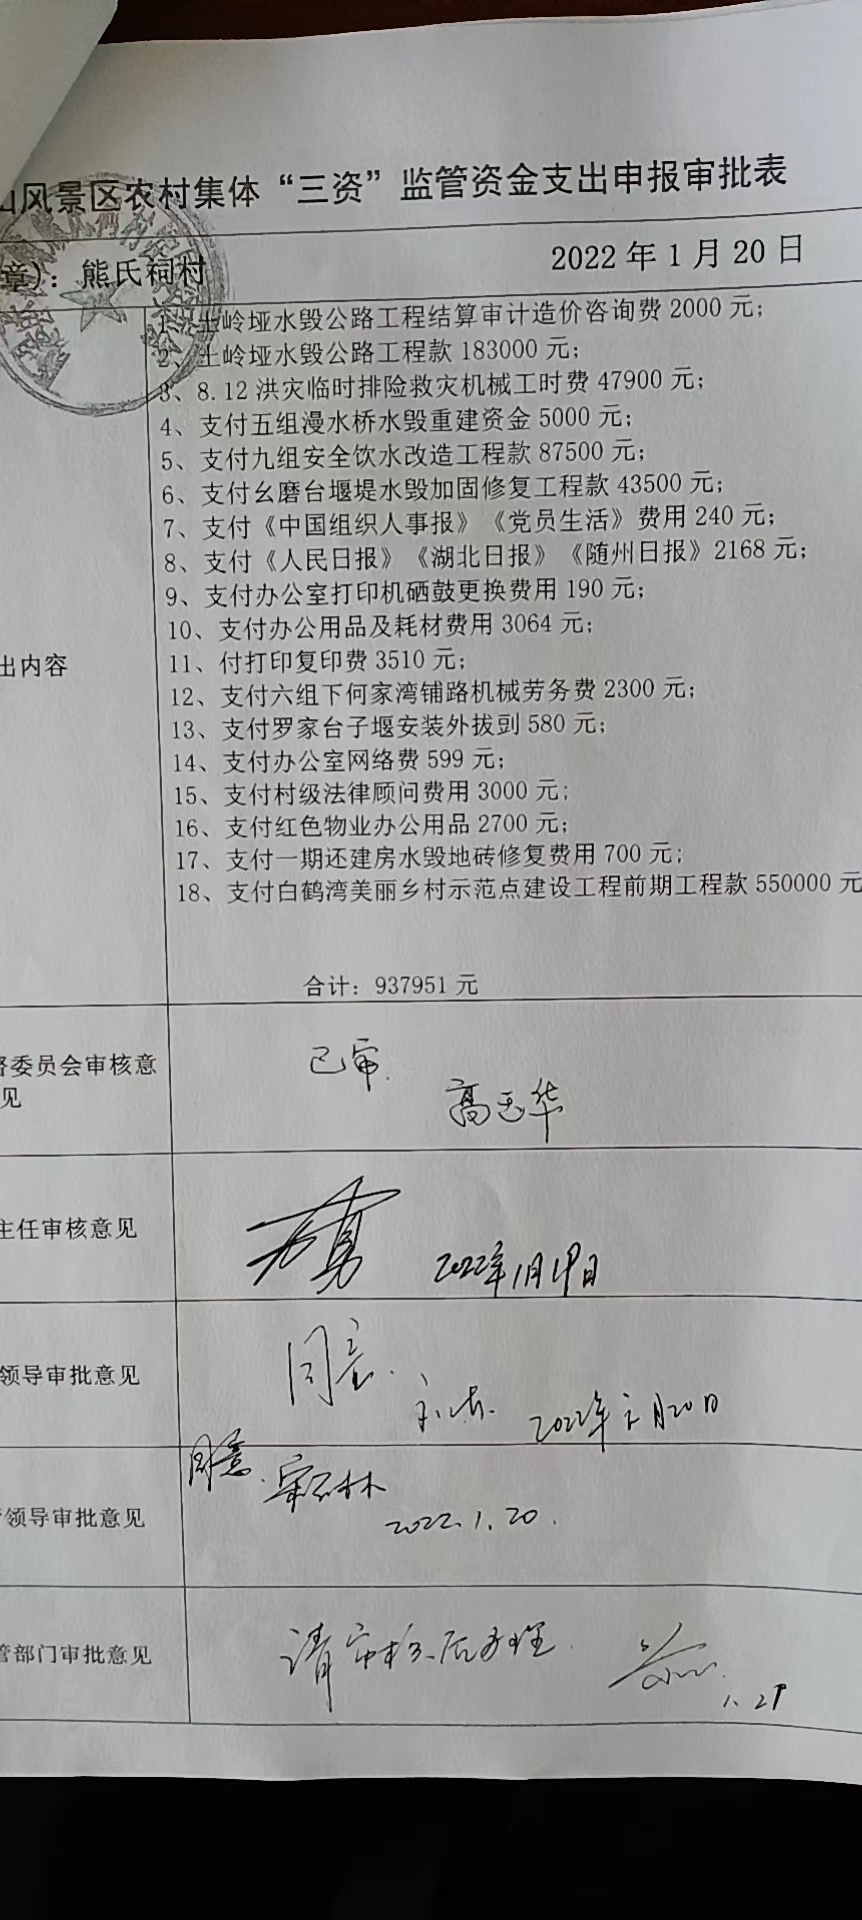 山风景区农村集体“三资”监管资金支出申报审批表
章）：熊氏祠村 2022年1月20日
1、土岭垭水毁公路工程结算审计造价咨询费2000元；
2、土岭垭水毁公路工程款183000元；
3、8.12洪灾临时排险救灾机械工时费47900元；
4、支付五组漫水桥水毁重建资金5000元；
5、支付九组安全饮水改造工程款87500元；
6、支付幺磨台堰堤水毁加固修复工程款43500元；
7、支付《中国组织人事报》《党员生活》费用240元；
8、支付《人民日报》《湖北日报》《随州日报》2168元；
9、支付办公室打印机硒鼓更换费用190元；
10、支付办公用品及耗材费用3064元；
出内容
11、付打印复印费3510元；
12、支付六组下何家湾铺路机械劳务费2300元；
13、支付罗家台子堰安装外拔剅580元；
14、支付办公室网络费599元；
15、支付村级法律顾问费用3000元；
16、支付红色物业办公用品2700元；
17、支付一期还建房水毁地砖修复费用700元；
18、支付白鹤湾美丽乡村示范点建设工程前期工程款550000元
合计：937951元
督委员会审核意见
已审
高玉华
主任审核意见
2022年1月19日
领导审批意见
同意.
2022年元月20日
领导审批意见
同意.
2022.1.20.
管部门审批意见
请审核后办理.
1.27